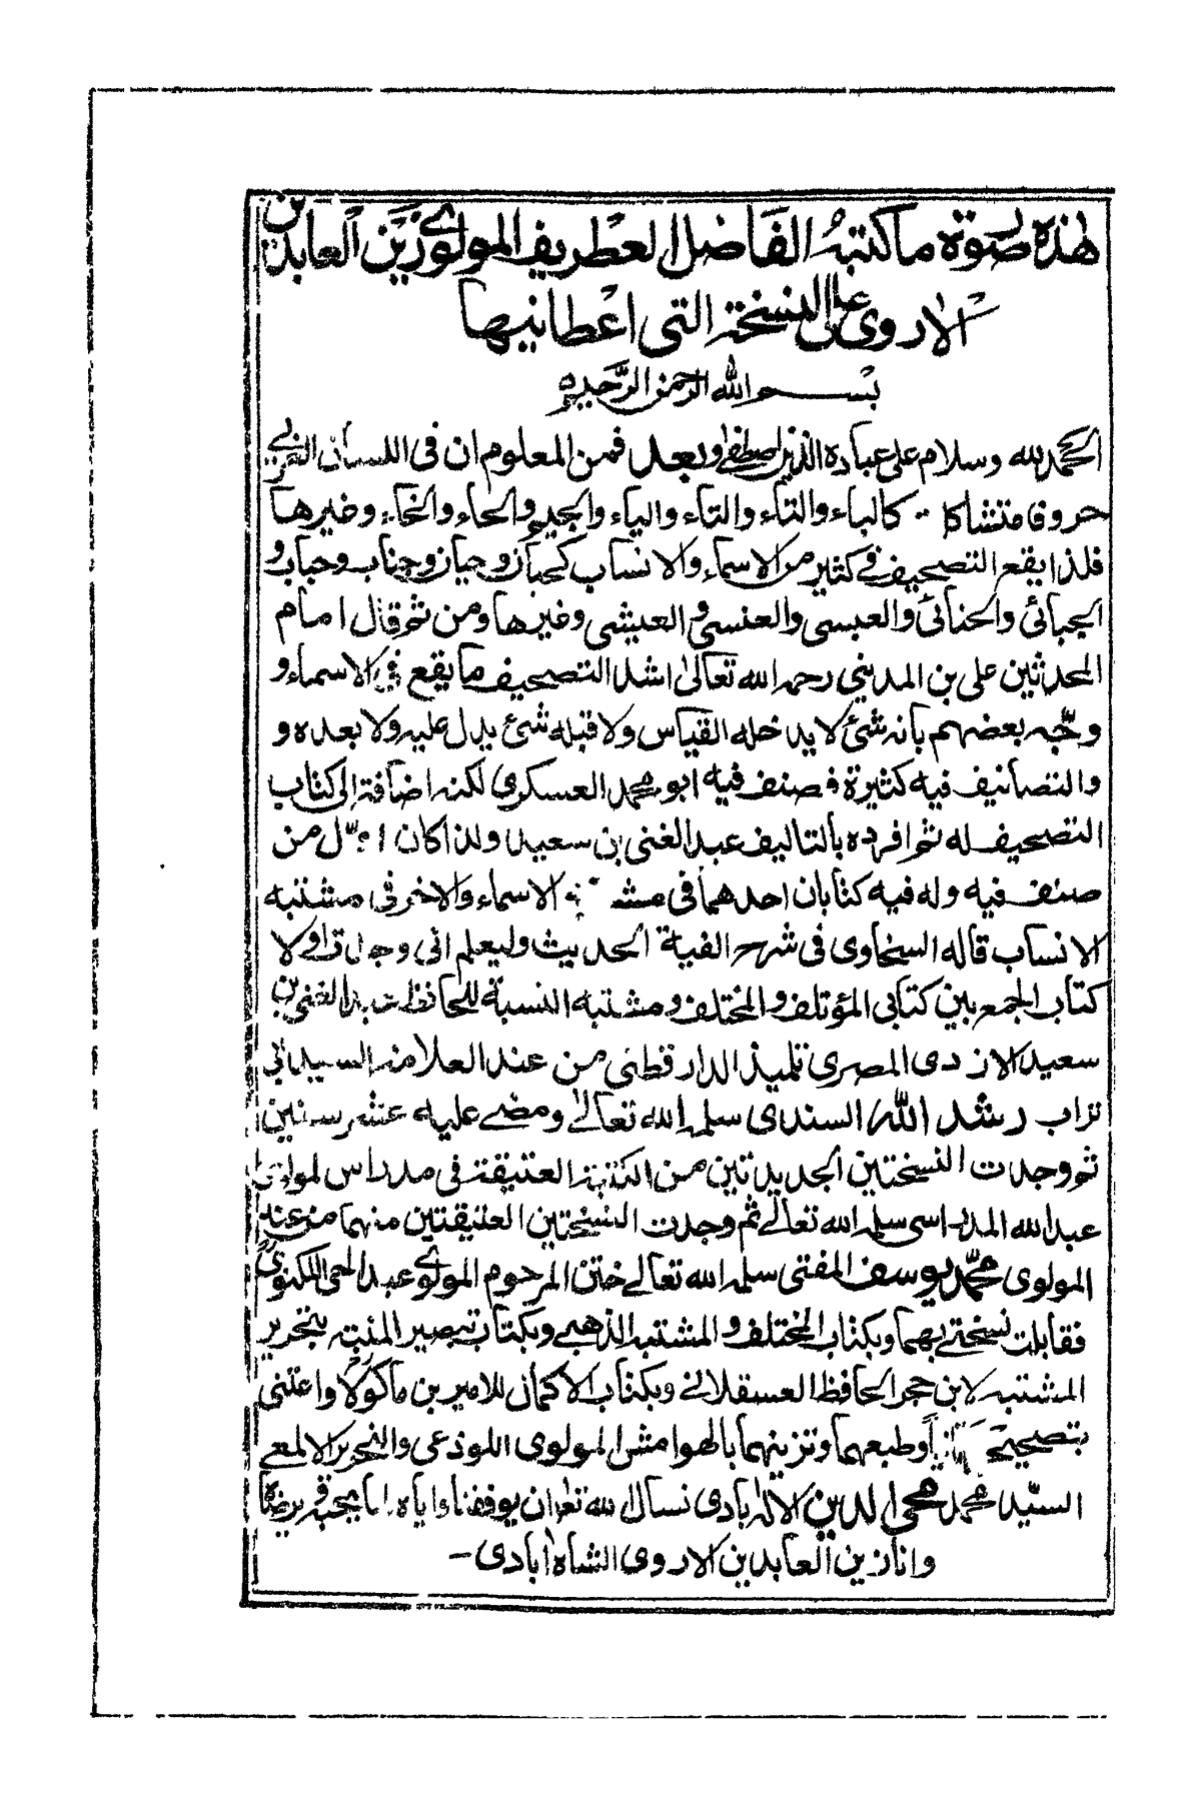 هذه صورة ما كتبه الفاضل الغطريف المولوي زين العابدين
الاروى على النسخة التى اعطانيها
بسم الله الرحمن الرحيم
الحمد لله وسلام على عباده الذين اصطفى وبعد فمن المعلوم ان فى اللسان العربي
حروفا متشاكلة كالباء والتاء والثاء والياء والجيم والحاء والخاء وغيرها
فلذا يقع التصحيف في كثير من الاسماء والانساب كحبان وحيان وجناب وحباب و
الجبائى والحنائى والعبسى والعنسى والعيشى وغيرها ومن ثم قال امام
المحدثين على بن المديني رحمه الله تعالى اشد التصحيف ما يقع في الاسماء و
وجّه بعضهم بانه شئ لا يدخله القياس ولا قبله شئ يدل عليه ولا بعده و
والتصانيف فيه كثيرة فصنف فيه ابو محمد العسكرى لكنه اضافه الى كتاب
التصحيف له ثم افرده بالتاليف عبد الغنى بن سعيد ولذا كان اوّل من
صنف فيه وله فيه كتابان احدهما فى مشتبه الاسماء والاخر فى مشتبه
الانساب قاله السخاوى فى شرح الفية الحديث وليعلم انى وجدت اولا
كتاب الجمع بين كتابى المؤتلف والمختلف ومشتبه النسبة للحافظ عبد الغنى بن
سعيد الازدى المصرى تلميذ الدارقطنى من عند العلامة السيد ابي
تراب رشد الله السندى سلمه الله تعالى ومضى عليه عشر سنين
ثم وجدت النسختين الجديدتين من الكتبة العتيقة فى مدراس لمولوى
عبد الله المدراسى سلمه الله تعالى ثم وجدت النسختين العتيقتين منهما من عند
المولوى محمد يوسف المفتى سلمه الله تعالى ختن المرحوم المولوي عبد الحى اللكنوي
فقابلت نسختي بهما وبكتاب المختلف والمشتبه الذهبي وبكتاب تبصير المنتبه بتحرير
المشتبه لابن حجر الحافظ العسقلاني وبكتاب الاكمال للامير بن ماكولا واعتنى
بتصحيحهما وطبعهما وتزينهما بالهوامش المولوى اللوذعى والنحرير الالمعي
السيّد محمد محى الدين الاله ابادى نسال الله تعالى ان يوفقنا واياه لما يحبه ويرضاه
وانا زين العابدين الاروى الشاه ابادى -